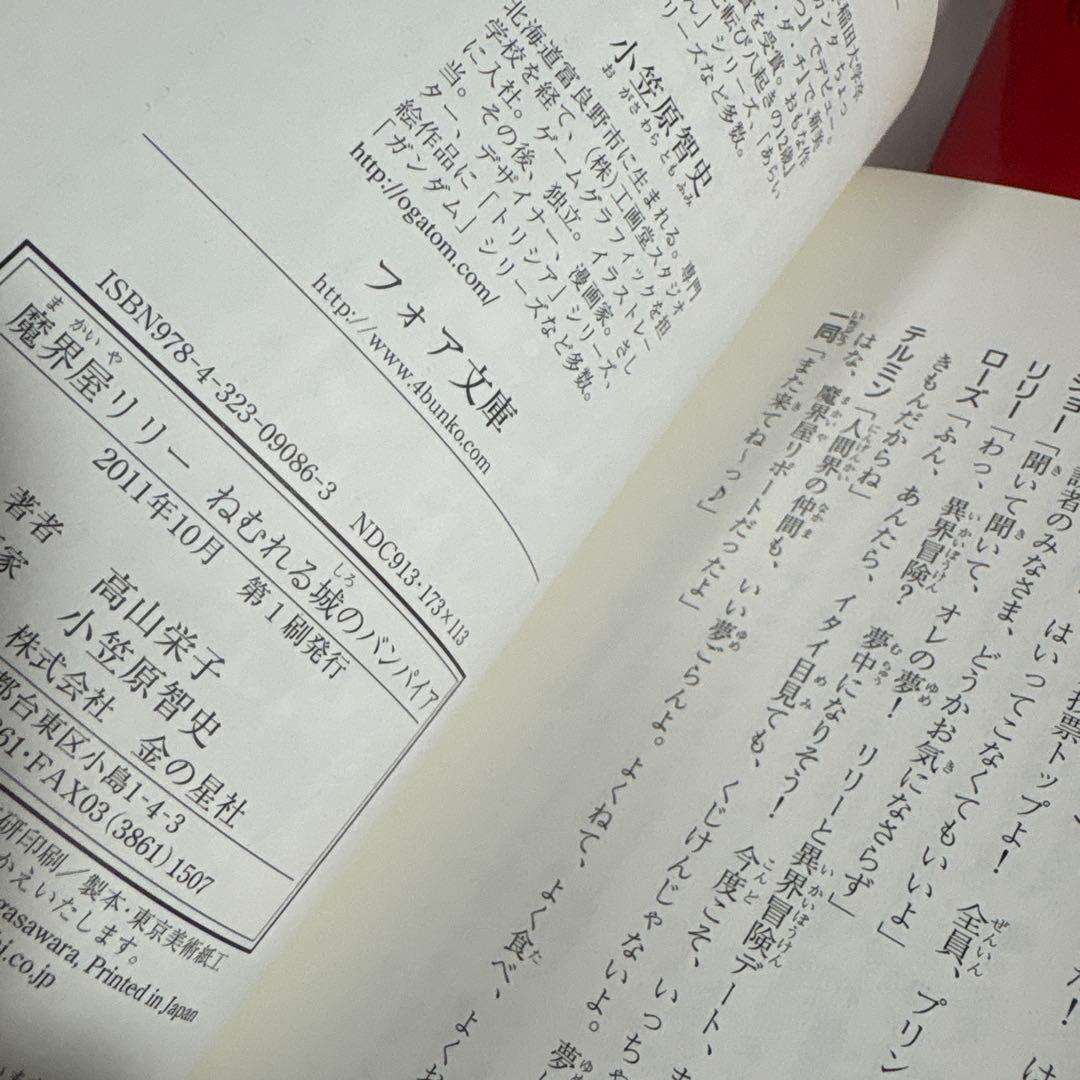 稲田大学卒
ちょっ
つ」でデビュー。
ダ・チ」で、新美
賞を受賞。おもな作
転び八起きの12歳」
ん」シリーズ、「あらい
リーズなど多数。
小笠原智史
お がさ わら とも ふみ
北海道富良野市に生まれる。専門
学校を経て、(株)工画堂スタジオ
に入社。ゲームグラフィックを担
当。その後、独立。イラストレー
ター、デザイナー、漫画家。さし
絵作品に「トリシア」シリーズ、
「ガンダム」シリーズなど多数。
http://ogatom.com/
フォア文庫
http://www.4bunko.com
ISBN978-4-323-09086-3
NDC913・173×113
ま かい や
しろ
魔界屋リリー ねむれる城のバンパイア
2011年10月 第1刷発行
著者 高山栄子
家 小笠原智史
株式会社 金の星社
都台東区小島1-4-3
861・FAX03(3861)1507
研印刷/製本・東京美術紙工
かえいたします。
gasawara, Printed in Japan
i.co.jp
投票トップよ!
はいってこなくてもいいよ」
ショー「読者のみなさま、どうかお気になさらず」
リリー「聞いて聞いて、オレの夢! リリーと異界冒険デート、
ローズ「わっ、異界冒険? 夢中になりそう! 今度こそ、いっち
きもんだからね」
テルミン「ふん、あんたら、イタイ目見ても、くじけんじゃないよ。夢
はな、人間界の仲間も、いい夢ごらんよ。よくねて、よく食べ、よく
一同「魔界屋リポートだったよ」
「また来てね~っ♪」
全員、プリン